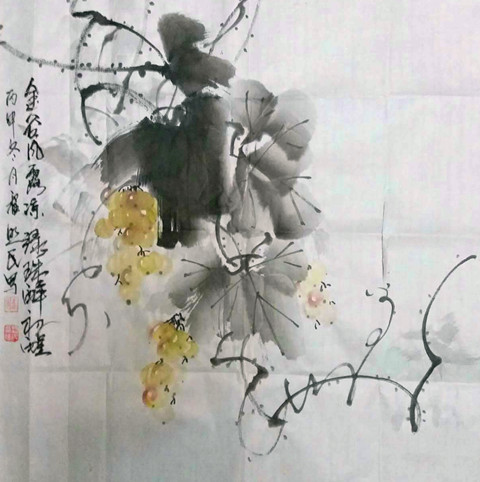 金谷风露凉绿珠醉初醒
丙申冬月